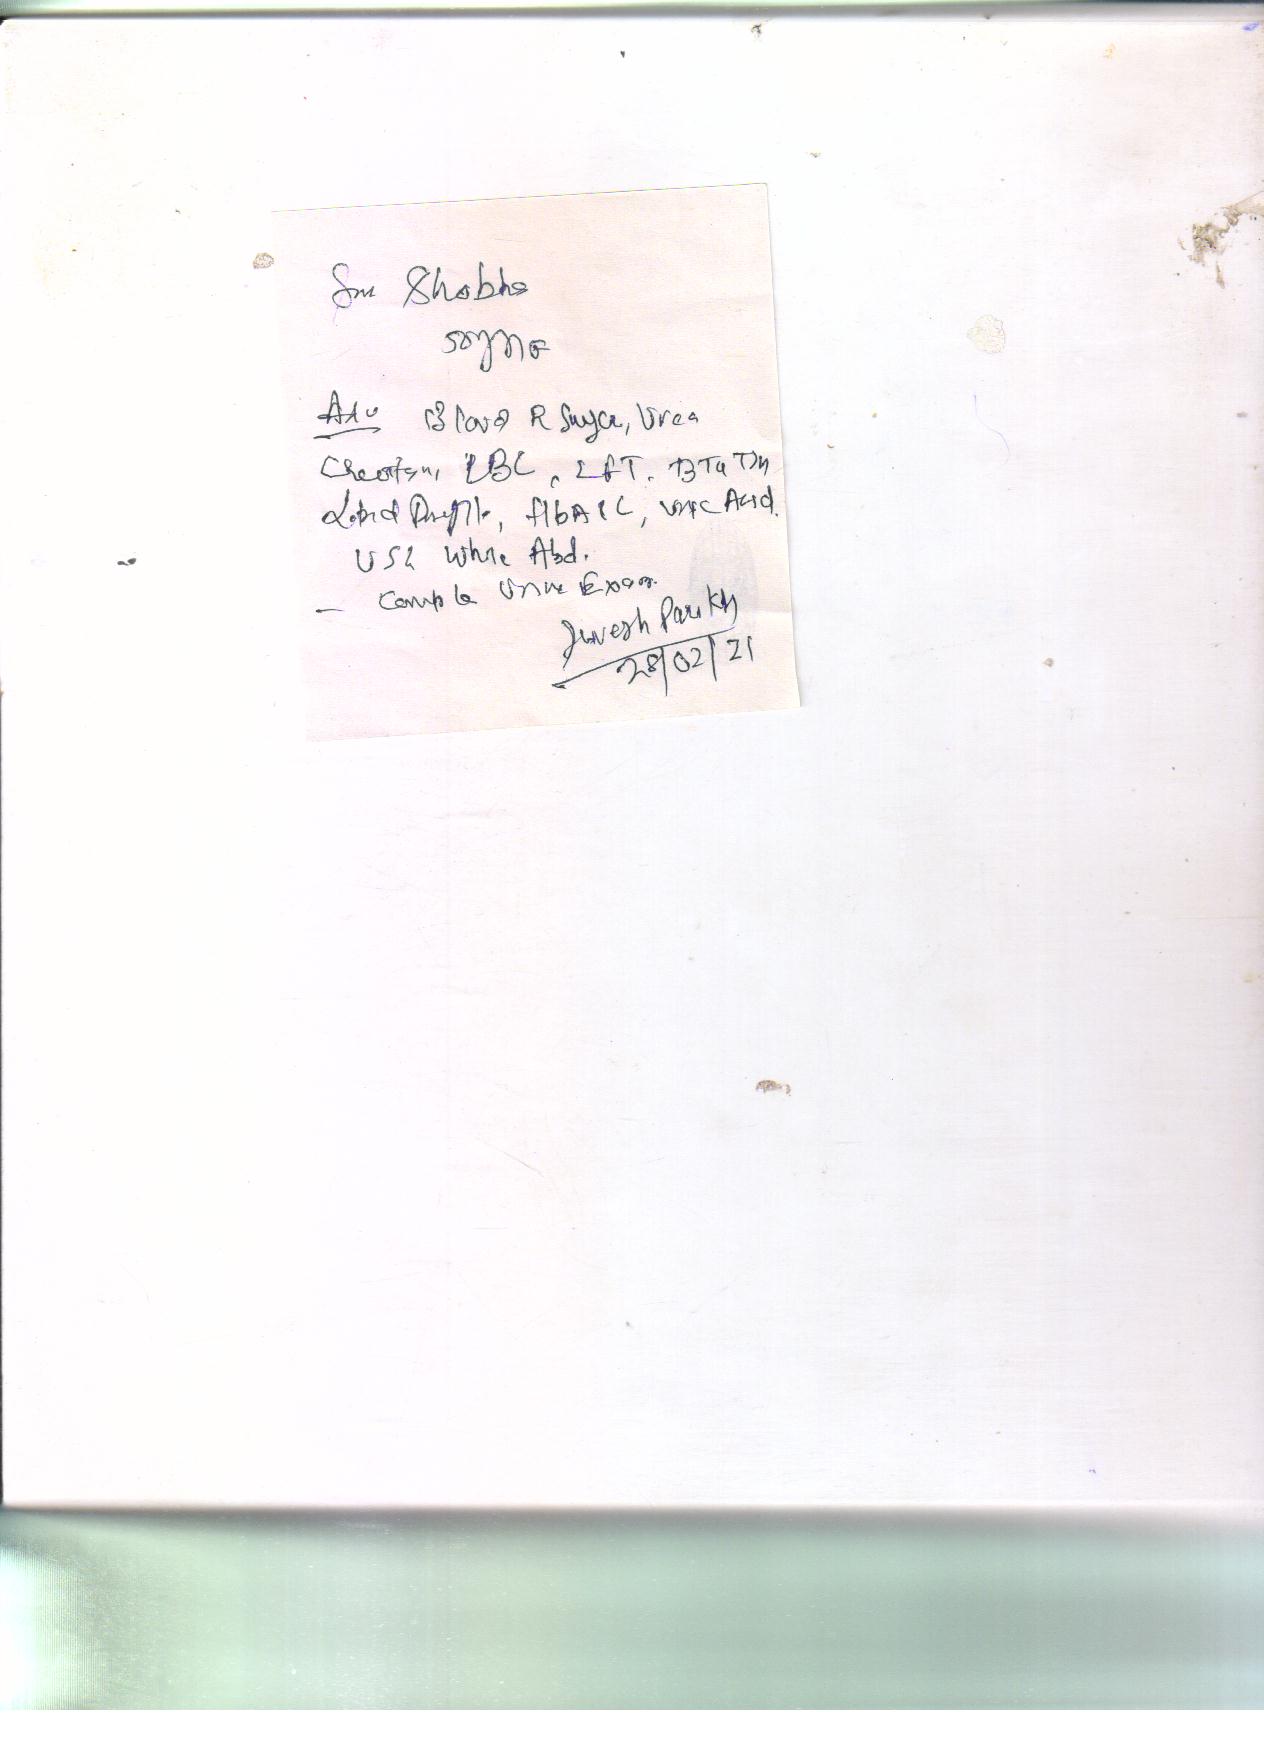 Sm Shobha
50y/M/F
Adv Blood R Sugar, Urea
Creatin, CBC, LFT,
Lipid Profile, HbA1C, Uric Acid.
USG Whole Abd.
— Complete Urine Exam.
Parikh
28/02/21